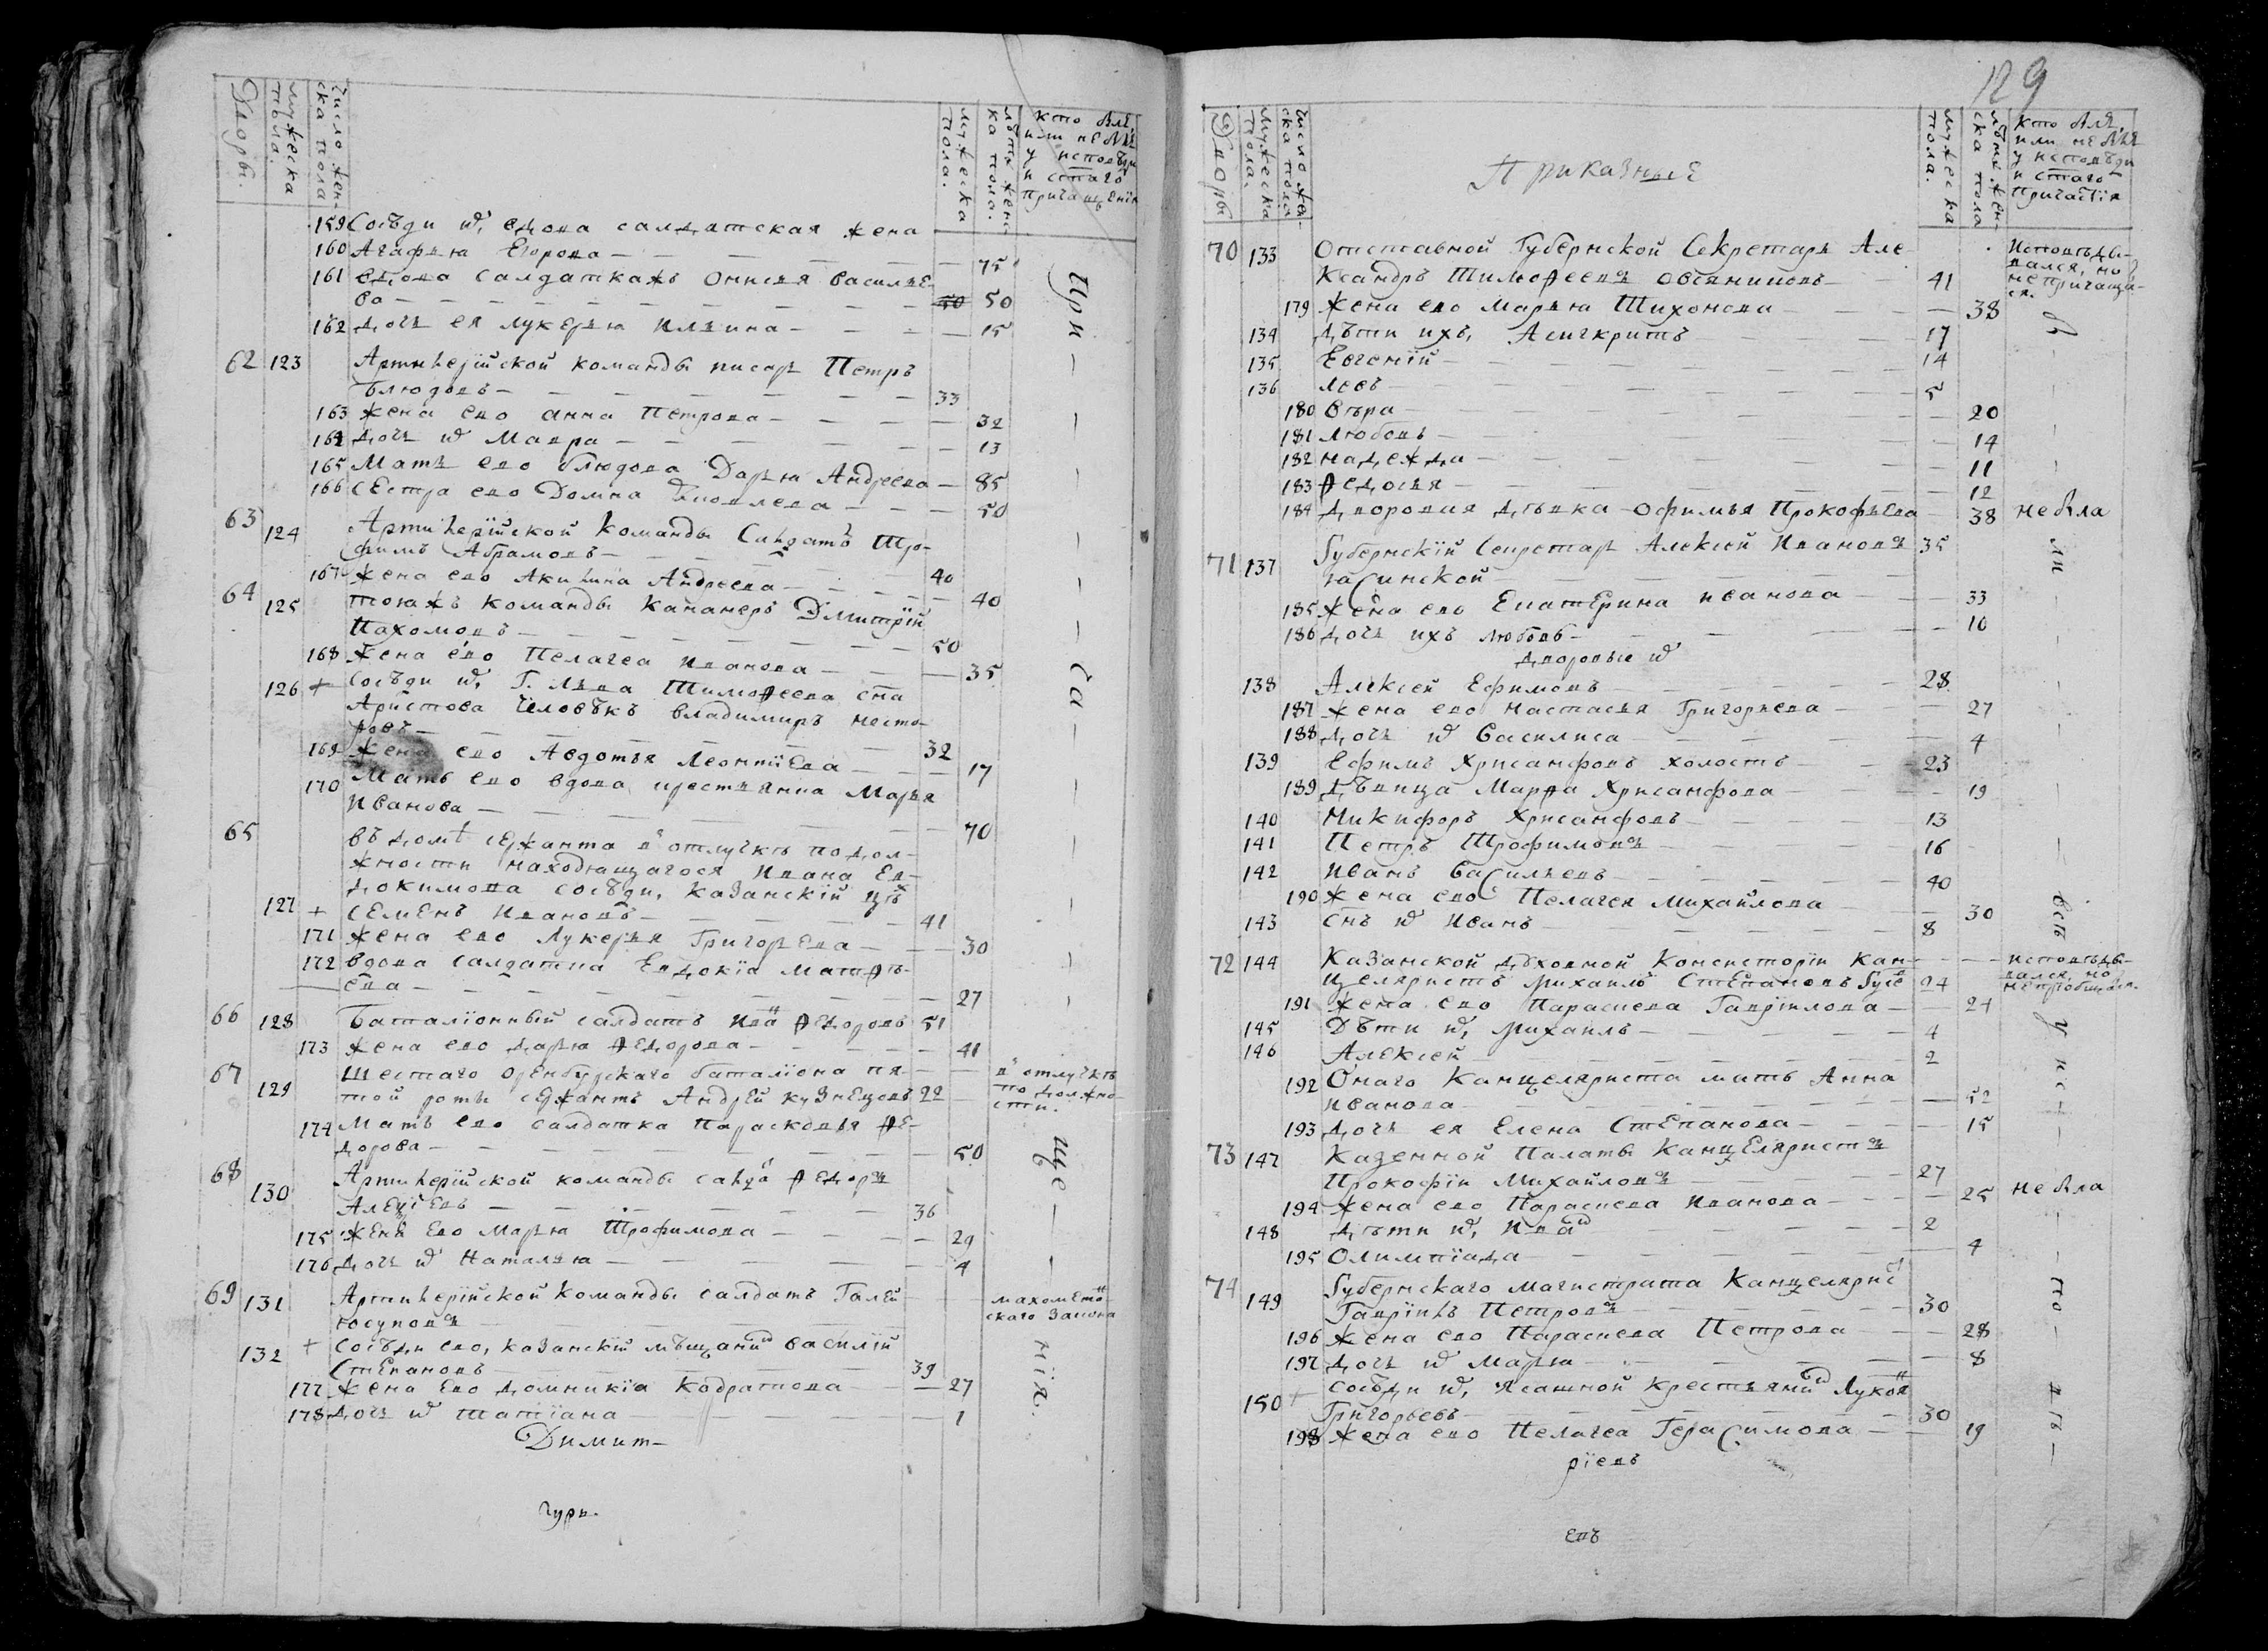 Дворы.
мужеска пола.
число женска пола
мужеска пола.
лѣта женска пола.
кто былъ или не былъ
у исповѣди
и стаго
причащенія
159 Сосѣди ихъ, вдова салдатская жена
160 Агафья Егорова — 75
161 вдова салдаткажъ Онисья Василье-
ва — 50
162 дочь ея Лукерья Ильина — 15
62 123 Артилерїйской команды писарь Петръ
Блюдовъ — 33
163 жена ево Анна Петрова — 32
164 дочь ихъ Мавра — 13
165 Мать ево Блюдова Дарья Андреева — 85
166 Сестра ево Домна Яковлева — 50
63 124 Артилерїйской команды Салдатъ Тро-
фимъ Абрамовъ — 40
167 жена ево Акилина Андреева — 40
64 125 тояжъ команды Кананеръ Дмитрїй
Пахомовъ — 50
168 жена ево Пелагеа Иванова — 35
126 + Сосѣди ихъ, Г. Льва Тимоѳеева сна
Аристова человѣкъ Владимиръ Несте-
ровъ — 32
169 жена ево Авдотья Леонтїева — 17
170 Мать ево вдова крестьянка Марья
Иванова — 70
65 въ домѣ сержанта в отлучкѣ по дол-
жности находящагося Ивана Ев-
докимова сосѣди, казанскїй цех
127 + Семенъ Ивановъ — 41
171 жена ево Лукерья Григорьева — 30
172 вдова салдатка Евдокїа Матвѣ-
ева — 27
66 128 Баталїонный салдатъ Иванъ Ѳедоровъ 51
173 жена ево Дарья Ѳедорова — 41
67 129 Шестаго Оренбурскаго баталїона пя-
той роты сержантъ Андрей Кузнецовъ 22
в отлучкѣ
по должно-
сти.
174 Мать ево салдатка Парасковья Ѳе-
дорова — 50
68 130 Артилерїйской команды салдатъ Ѳедоръ
Алексїевъ — 36
175 Жена ево Марья Трофимова — 29
176 дочь ихъ Наталья — 4
69 131 Артилерїйской команды салдатъ Галей
Юсуповъ
махометан-
скаго закона
132 + Сосѣди ево, казанскїй мѣщанинъ Василїй
Степановъ — 39
177 жена ево Домникїа Кодратова — 27
178 дочь ихъ Татїана — 1
При — ча — ще — нія.
Димит-
гурь.
129
Дворы
мужеска пола.
число женска пола
Приказные
мужеска пола.
лѣта женска пола
кто былъ,
или не былъ
у исповѣди
и стаго
Причастїя
70 133 Отставной Губернской Секретарь Але-
ксандръ Тимоѳеевъ Овсянниковъ — 41
Исповѣды-
вался, но
не причаща-
ся.
179 жена ево Марья Тихонова — 38
134 дѣти ихъ, Асигкритъ — 17
135 Евгенїй — 14
136 Левъ — 5
180 Вѣра — 20
181 Любовь — 14
182 Надежда — 11
183 Ѳедосья — 12
184 Дворовая дѣвка Офимья Прокофьева — 38 не была
71 137 Губернскїй Секретарь Алексей Ивановъ 35
Ясинской —
185 Жена ево Екатерина Иванова — 33
186 дочь ихъ Любовь — 10
дворовые ихъ
138 Алексей Ефимовъ — 28
187 жена ево Настасья Григорьева — 27
188 дочь ихъ Василиса — 4
139 Ефимъ Хрисанфовъ холостъ — 23
189 дѣвица Марѳа Хрисанфова — 19
140 Никифоръ Хрисанфовъ — 13
141 Петръ Трофимовъ — 16
142 Иванъ Васильевъ — 40
190 жена ево Пелагея Михайлова — 30
143 снъ ихъ Иванъ — 8
72 144 Казанской Духовной Консисторїи Кан-
целяристъ Михаилъ Степановъ 24
исповѣды-
вался, но
191 жена ево Параскева Гаврїилова — 24
145 Дѣти ихъ, Михаилъ — 4
146 Алексей — 2
192 Онаго Канцеляриста мать Анна
Иванова — 52
193 дочь ея Елена Степанова — 15
73 147 Казенной Палаты Канцеляристъ
Прокофїй Михайловъ — 27
194 жена ево Параскева Иванова — 25 не была
148 дѣти ихъ, Иванъ — 2
195 Олимпїада — 4
74 149 Губернскаго магистрата Канцелярист
Гаврїилъ Петровъ — 30
196 жена ево Параскева Петрова — 28
197 дочь ихъ Марья — 8
150 + сосѣди ихъ, Ясашной крестьянинъ Лукоян
Григорьевъ — 30
198 жена ево Пелагеа Герасимова — 19
рїевъ
евъ